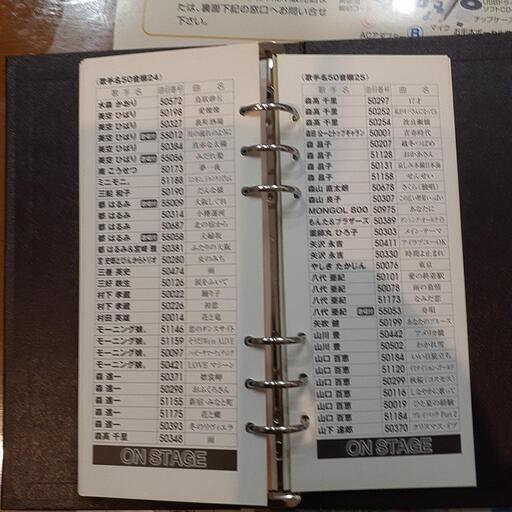 たは、裏面下記の窓口へお問い合せ
下さい。
USBドラ
ソフトCD
チップケース
マイク
ACアダプター
(歌手名50音順24)
歌手名 選曲番号 曲名
水森 かおり 50572 鳥取砂丘
美空 ひばり 50198 愛燦燦
美空 ひばり 50327 裏町酒場
美空 ひばり 55012 川の流れのように
美空 ひばり 50384 真赤な太陽
美空 ひばり 55056 みだれ髪
南 こうせつ 50173 夢一夜
ミニモニ。 51188
三船 和子 50190 だんな様
都 はるみ 55009 大阪しぐれ
都 はるみ 50314 小樽運河
都 はるみ 50687 北の宿から
都 はるみ 55058 夫婦坂
都 はるみ&宮崎 雅 50381 ふたりの大阪
宮 史郎とぴんからトリオ 50280 女のみち
三善 英史 50474 雨
三好 鉄生 50126 涙をふいて
村下 孝蔵 50022 踊り子
村下 孝蔵 50226 初恋
村田 英雄 50014 花と竜
モーニング娘。 51146 恋のダンスサイト
モーニング娘。 51159 そうだ!We're ALIVE
モーニング娘。 50097 ハッピーサマーウェディング
モーニング娘。 50421 LOVEマシーン
森 進一 50371 襟裳岬
森 進一 50298 おふくろさん
森 進一 51155 新宿・みなと町
森 進一 51175 花と蝶
森 進一 50393 冬のリヴィエラ
森高 千里 50348 雨
ON STAGE
(歌手名50音順25)
歌手名 選曲番号 曲名
森高 千里 50297 17才
森高 千里 50252 私がオバさんになっても
森高 千里 50254 渡良瀬橋
森田 公一とトップギャラン 50001 青春時代
森 昌子 50207 越冬つばめ
森 昌子 51128 おかあさん
森 昌子 50131 哀しみ本線日本海
森 昌子 51158 せんせい
森山 直太朗 50678 さくら(独唱)
森山 良子 50307 この広い野原いっぱい
MONGOL 800 50975 あなたに
もんた&ブラザーズ 50389 ダンシング・オールナイト
薬師丸 ひろ子 50303 メイン・テーマ
矢沢 永吉 50411 アイラブユーOK
矢沢 永吉 50330 時間よ止まれ
やしき たかじん 50076 東京
八代 亜紀 50101 愛の終着駅
八代 亜紀 50078 雨の慕情
八代 亜紀 51173 なみだ恋
八代 亜紀 55053 舟唄
矢吹 健 50199 あなたのブルース
山川 豊 50442 アメリカ橋
山川 豊 50502 わかれ雪
山口 百恵 50184 いい日旅立ち
山口 百恵 51120
山口 百恵 50299 秋桜(コスモス)
山口 百恵 50116 しなやかに歌って
山口 百恵 50019 ひと夏の経験
山口 百恵 51184 プレイバックPart2
山下 達郎 50370 クリスマス・イブ
ON STAGE